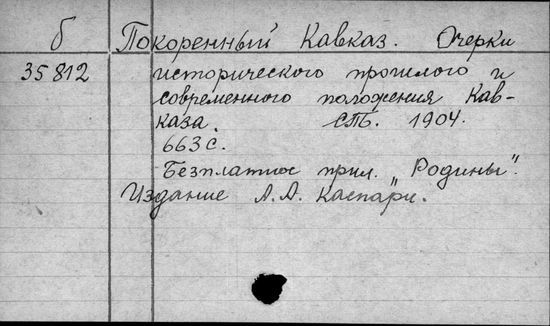 б Покоренный Кавказ. Очерки
35812 исторического прошлого и
современного положения Кав-
каза. СПБ. 1904.
663 с.
Безплатное прил. "Родины".
Издание А.А. Каспари.